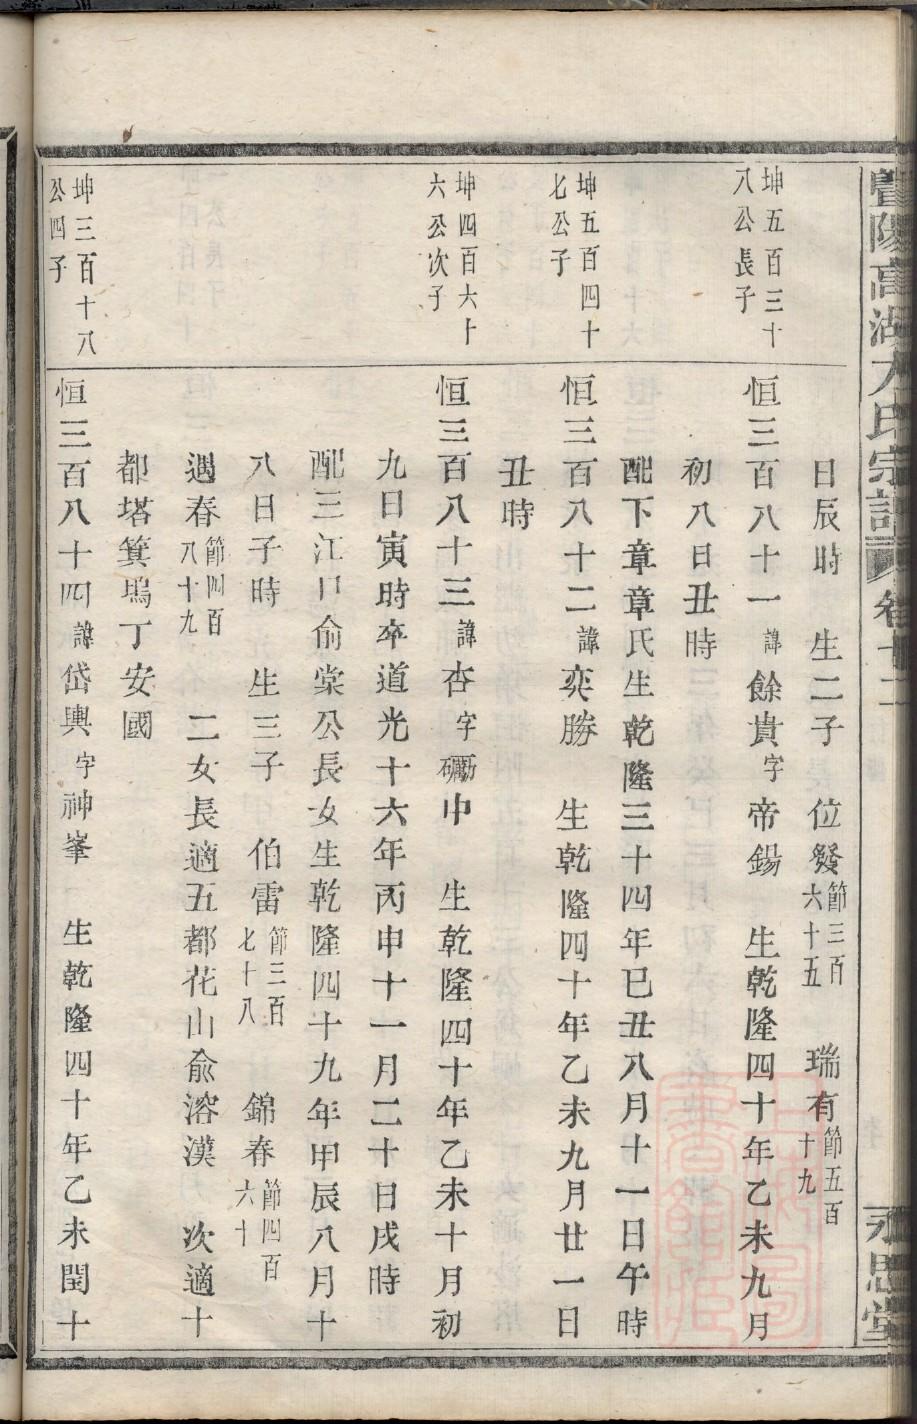 暨陽高湖方氏宗譜 卷十二 永思堂
日辰時 生二子 位發 節三百六十五 瑞有 節五百十九
坤五百三十八公長子
恒三百八十一 諱餘貴 字帝錫 生乾隆四十年乙未九月
初八日丑時
配下章章氏生乾隆三十四年己丑八月十一日午時
坤五百四十七公子
恒三百八十二 諱奕勝 生乾隆四十年乙未九月廿一日
丑時
坤四百六十六公次子
恒三百八十三 諱杏 字礪中 生乾隆四十年乙未十月初
九日寅時卒道光十六年丙申十一月二十日戌時
配三江口俞棠公長女生乾隆四十九年甲辰八月十
八日子時 生三子 伯雷 節三百七十八 錦春 節四百六十
遇春 節四百八十九 二女長適五都花山俞溶漢 次適十
都塔箕塢丁安國
坤三百十八公四子
恒三百八十四 諱岱輿 字神峯 生乾隆四十年乙未閏十